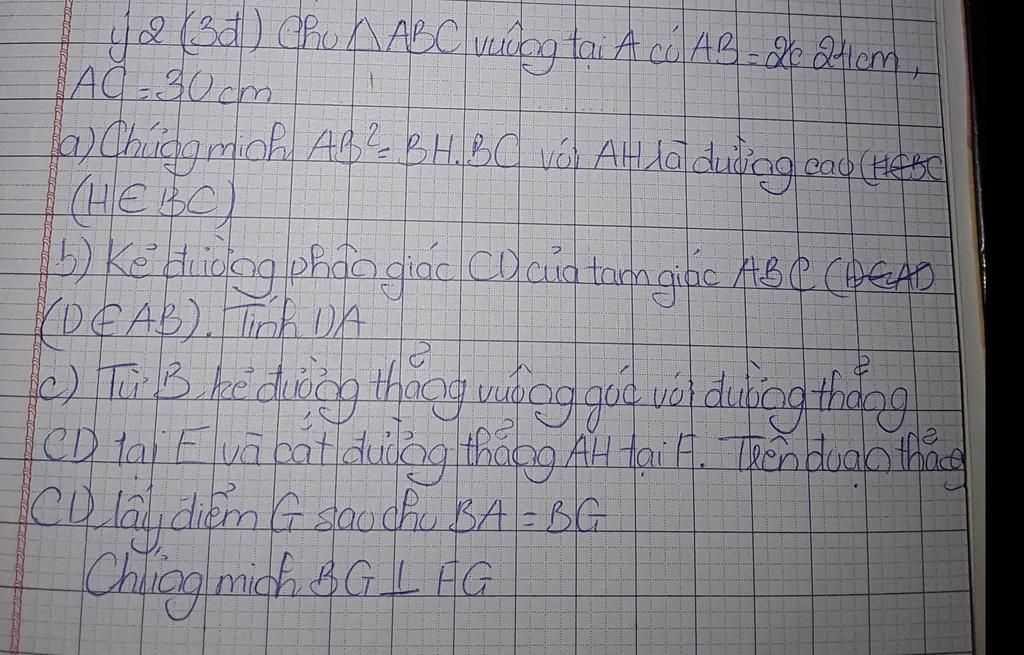 ý 2 (3đ) Cho △ ABC vuông tại A có AB = 24cm,
AC = 30 cm
a) Chứng minh AB² = BH.BC với AH là đường cao (H∈BC
(H∈BC)
b) Kẻ đường phân giác CD của tam giác ABC (D∈AD
(D∈AB). Tính DA
c) Từ B kẻ đường thẳng vuông góc với đường thẳng
CD tại E và cắt đường thẳng AH tại F. Trên đoạn thẳng
CD lấy điểm G sao cho BA = BG
Chứng minh BG ⊥ FG